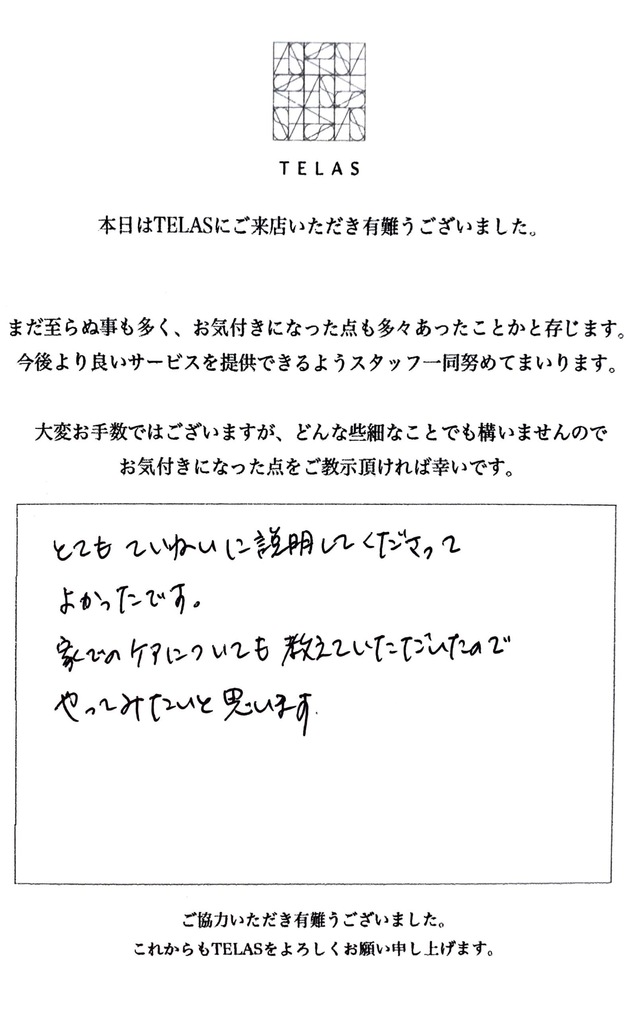 TELAS
本日はTELASにご来店いただき有難うございました。
まだ至らぬ事も多く、お気付きになった点も多々あったことかと存じます。
今後より良いサービスを提供できるようスタッフ一同努めてまいります。
大変お手数ではございますが、どんな些細なことでも構いませんので
お気付きになった点をご教示頂ければ幸いです。
とてもていねいに説明してくださって
よかったです。
家でのケアについても教えていただいたので
やってみたいと思います.
ご協力いただき有難うございました。
これからもTELASをよろしくお願い申し上げます。